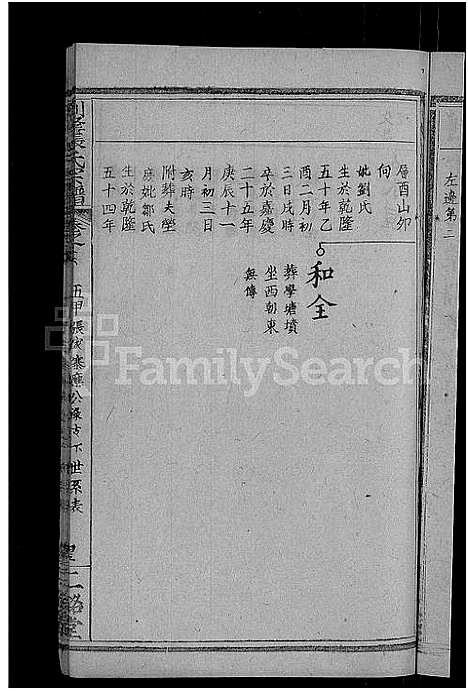 左邊第三
層酉山卯
向
妣劉氏
生於乾隆
五十年乙
酉二月初
三日戌時
卒於嘉慶
二十五年
庚辰十一
月初三日
亥時
附葬夫塋
庶妣鄒氏
生於乾隆
五十四年
和全
葬學塘墳
坐西朝東
無傳
張氏宗譜
五甲張家寨
公 下世系表
堂
FamilySearch